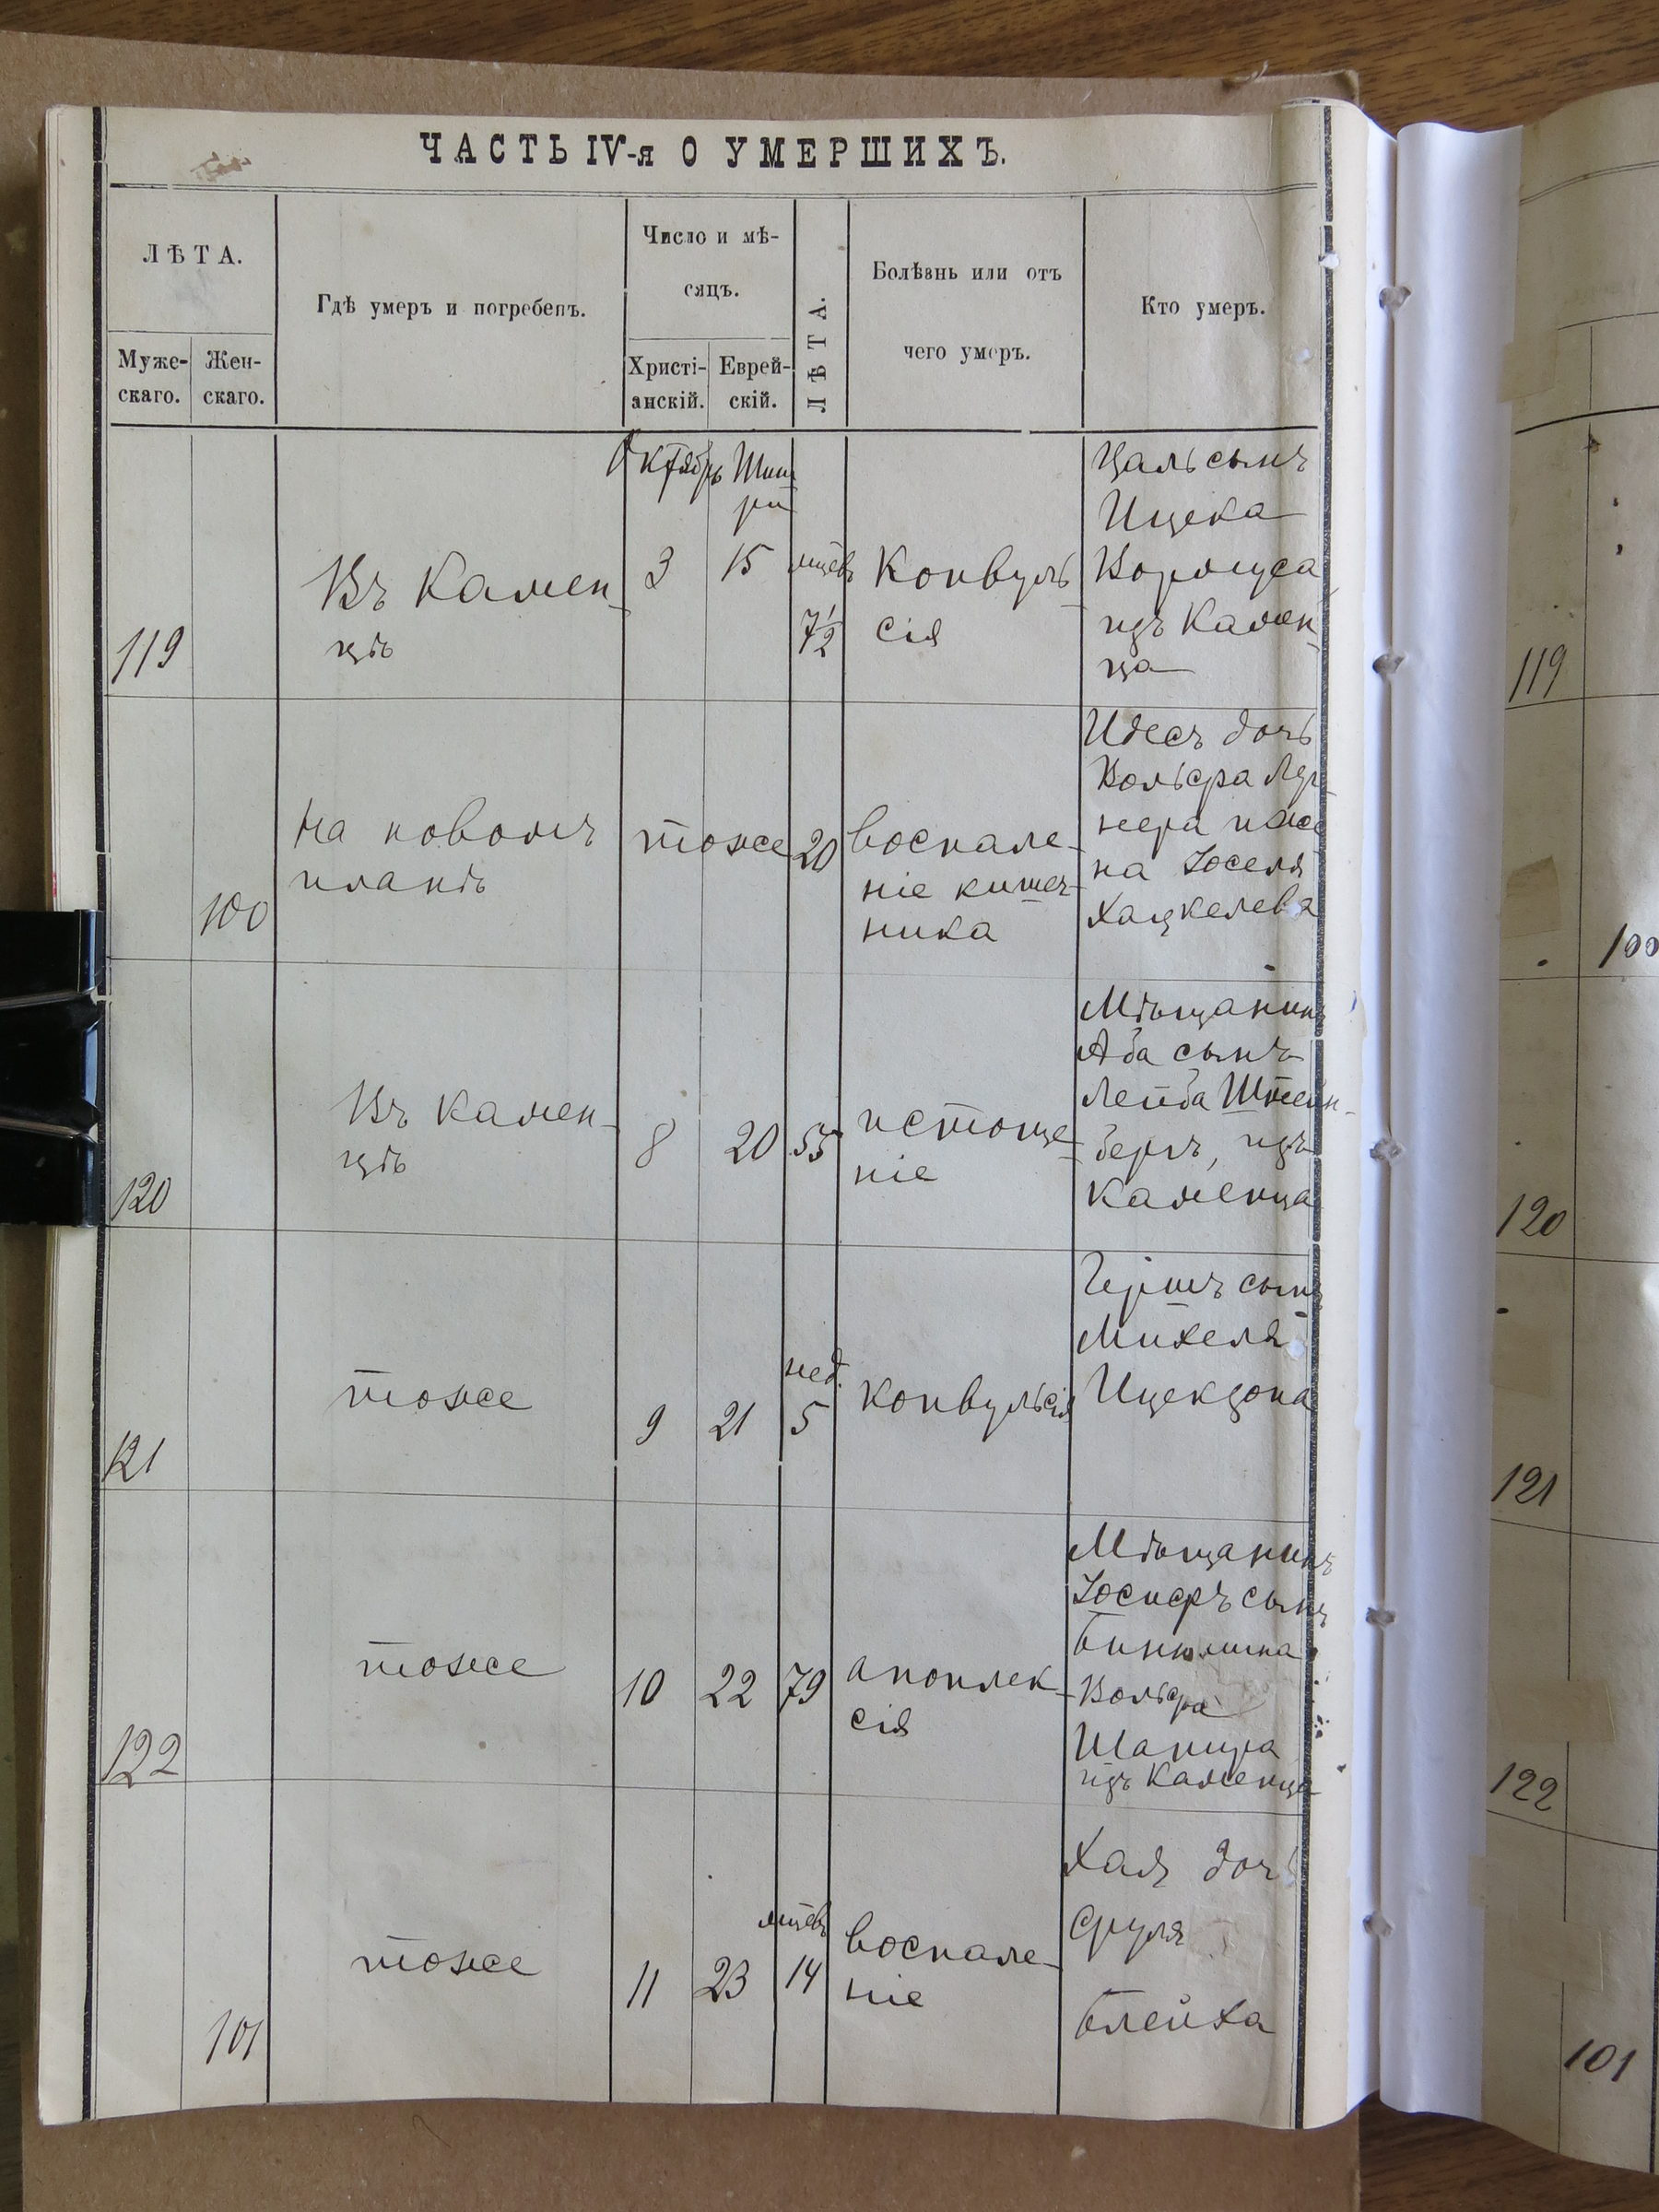 ЧАСТЬ IV-я О УМЕРШИХЪ.
ЛѢТА.
Муже-
скаго.
Жен-
скаго.
Гдѣ умеръ и погребенъ.
Число и мѣ-
сяцъ.
Христі-
анскій.
Еврей-
скій.
ЛѢТА.
Болѣзнь или отъ
чего умеръ.
Кто умеръ.
119
Въ Камен-
цѣ
Октябрь
3
Тиш
ри
15
мцев
7½
Конвуль
сія
Цаль сынъ
Ицека
изъ Камен
ца
100
На новомъ
планѣ
тоже
20
воспале-
ніе кишеч-
ника
Идесъ дочь
Вольфа Лер-
нера и же
на Іоселя
Хацкелева
120
Въ Камен-
цѣ
8
20
55
истоще-
ніе
Мѣщанинъ
Аба сынъ
Лейба Штейн-
бергъ, изъ
Каменца
121
тоже
9
21
нед.
5
конвульсія
Гершъ сынъ
Михеля
Ицекзона
122
тоже
10
22
79
апоплек-
сія
Мѣщанинъ
Іосифъ сынъ
Биньмина
Вольфа
Шапира
изъ Каменца
101
тоже
11
23
мцевъ
14
воспале-
ніе
Хая дочь
Сруля
Блейха
119
100
120
121
122
101